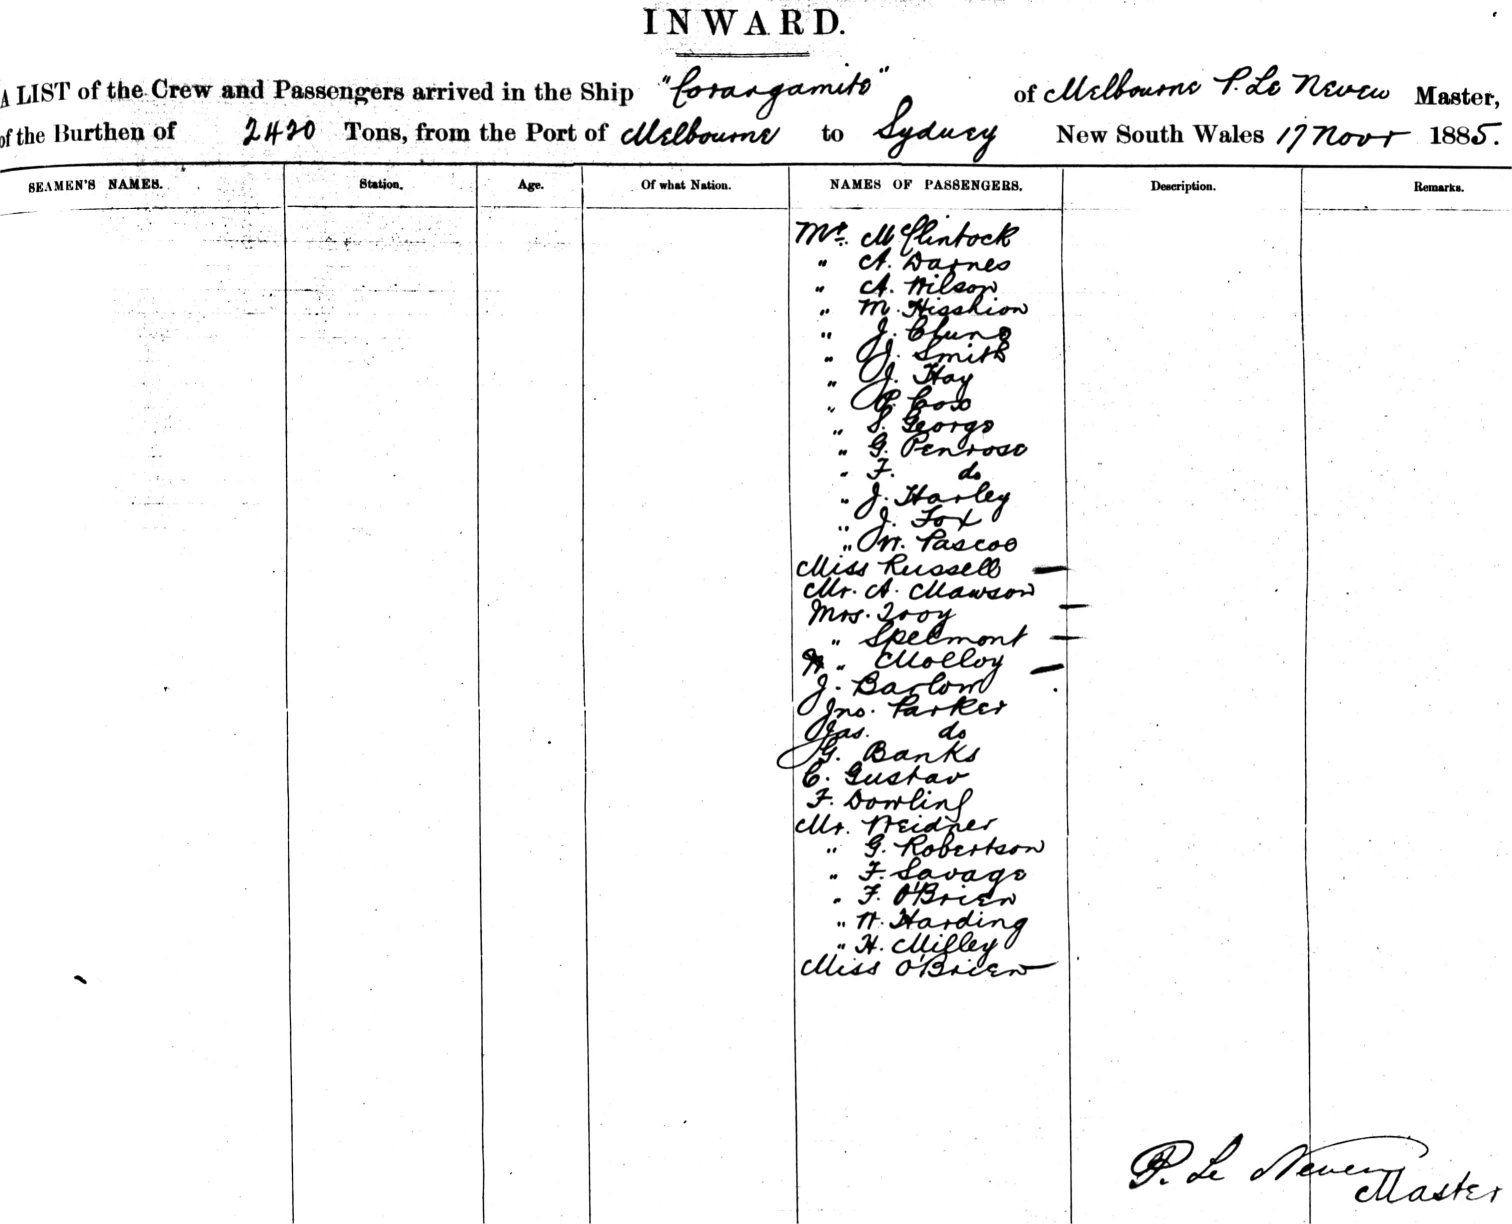 INWARD.
A LIST of the Crew and Passengers arrived in the Ship "Corangamite" of Melbourne P. Le Neveu Master,
of the Burthen of 2420 Tons, from the Port of Melbourne to Sydney New South Wales 17 Novr 1885.
SEAMEN'S NAMES. Station. Age. Of what Nation. NAMES OF PASSENGERS. Description. Remarks.
Mr. McClintock
" A. Darnes
" A. Wilson
" M.
" J.
" J. Smith
" J. Hay
" P. Cox
" S. George
" G. Penrose
" F. do
" J. Harley
" J. Fox
" W. Pascoe
Miss Russell —
Mr. A. Mawson
Mrs. Troy —
" Spelmont —
" Molloy —
J. Barlow
Jno. Parker
Jas. do
G. Banks
C. Gustav
F. Dowling
Mr. Weidner
" G. Robertson
" F. Savage
" F. O'Brien
" W. Harding
" H. Milley
Miss O'Brien —
P. Le Neveu
Master